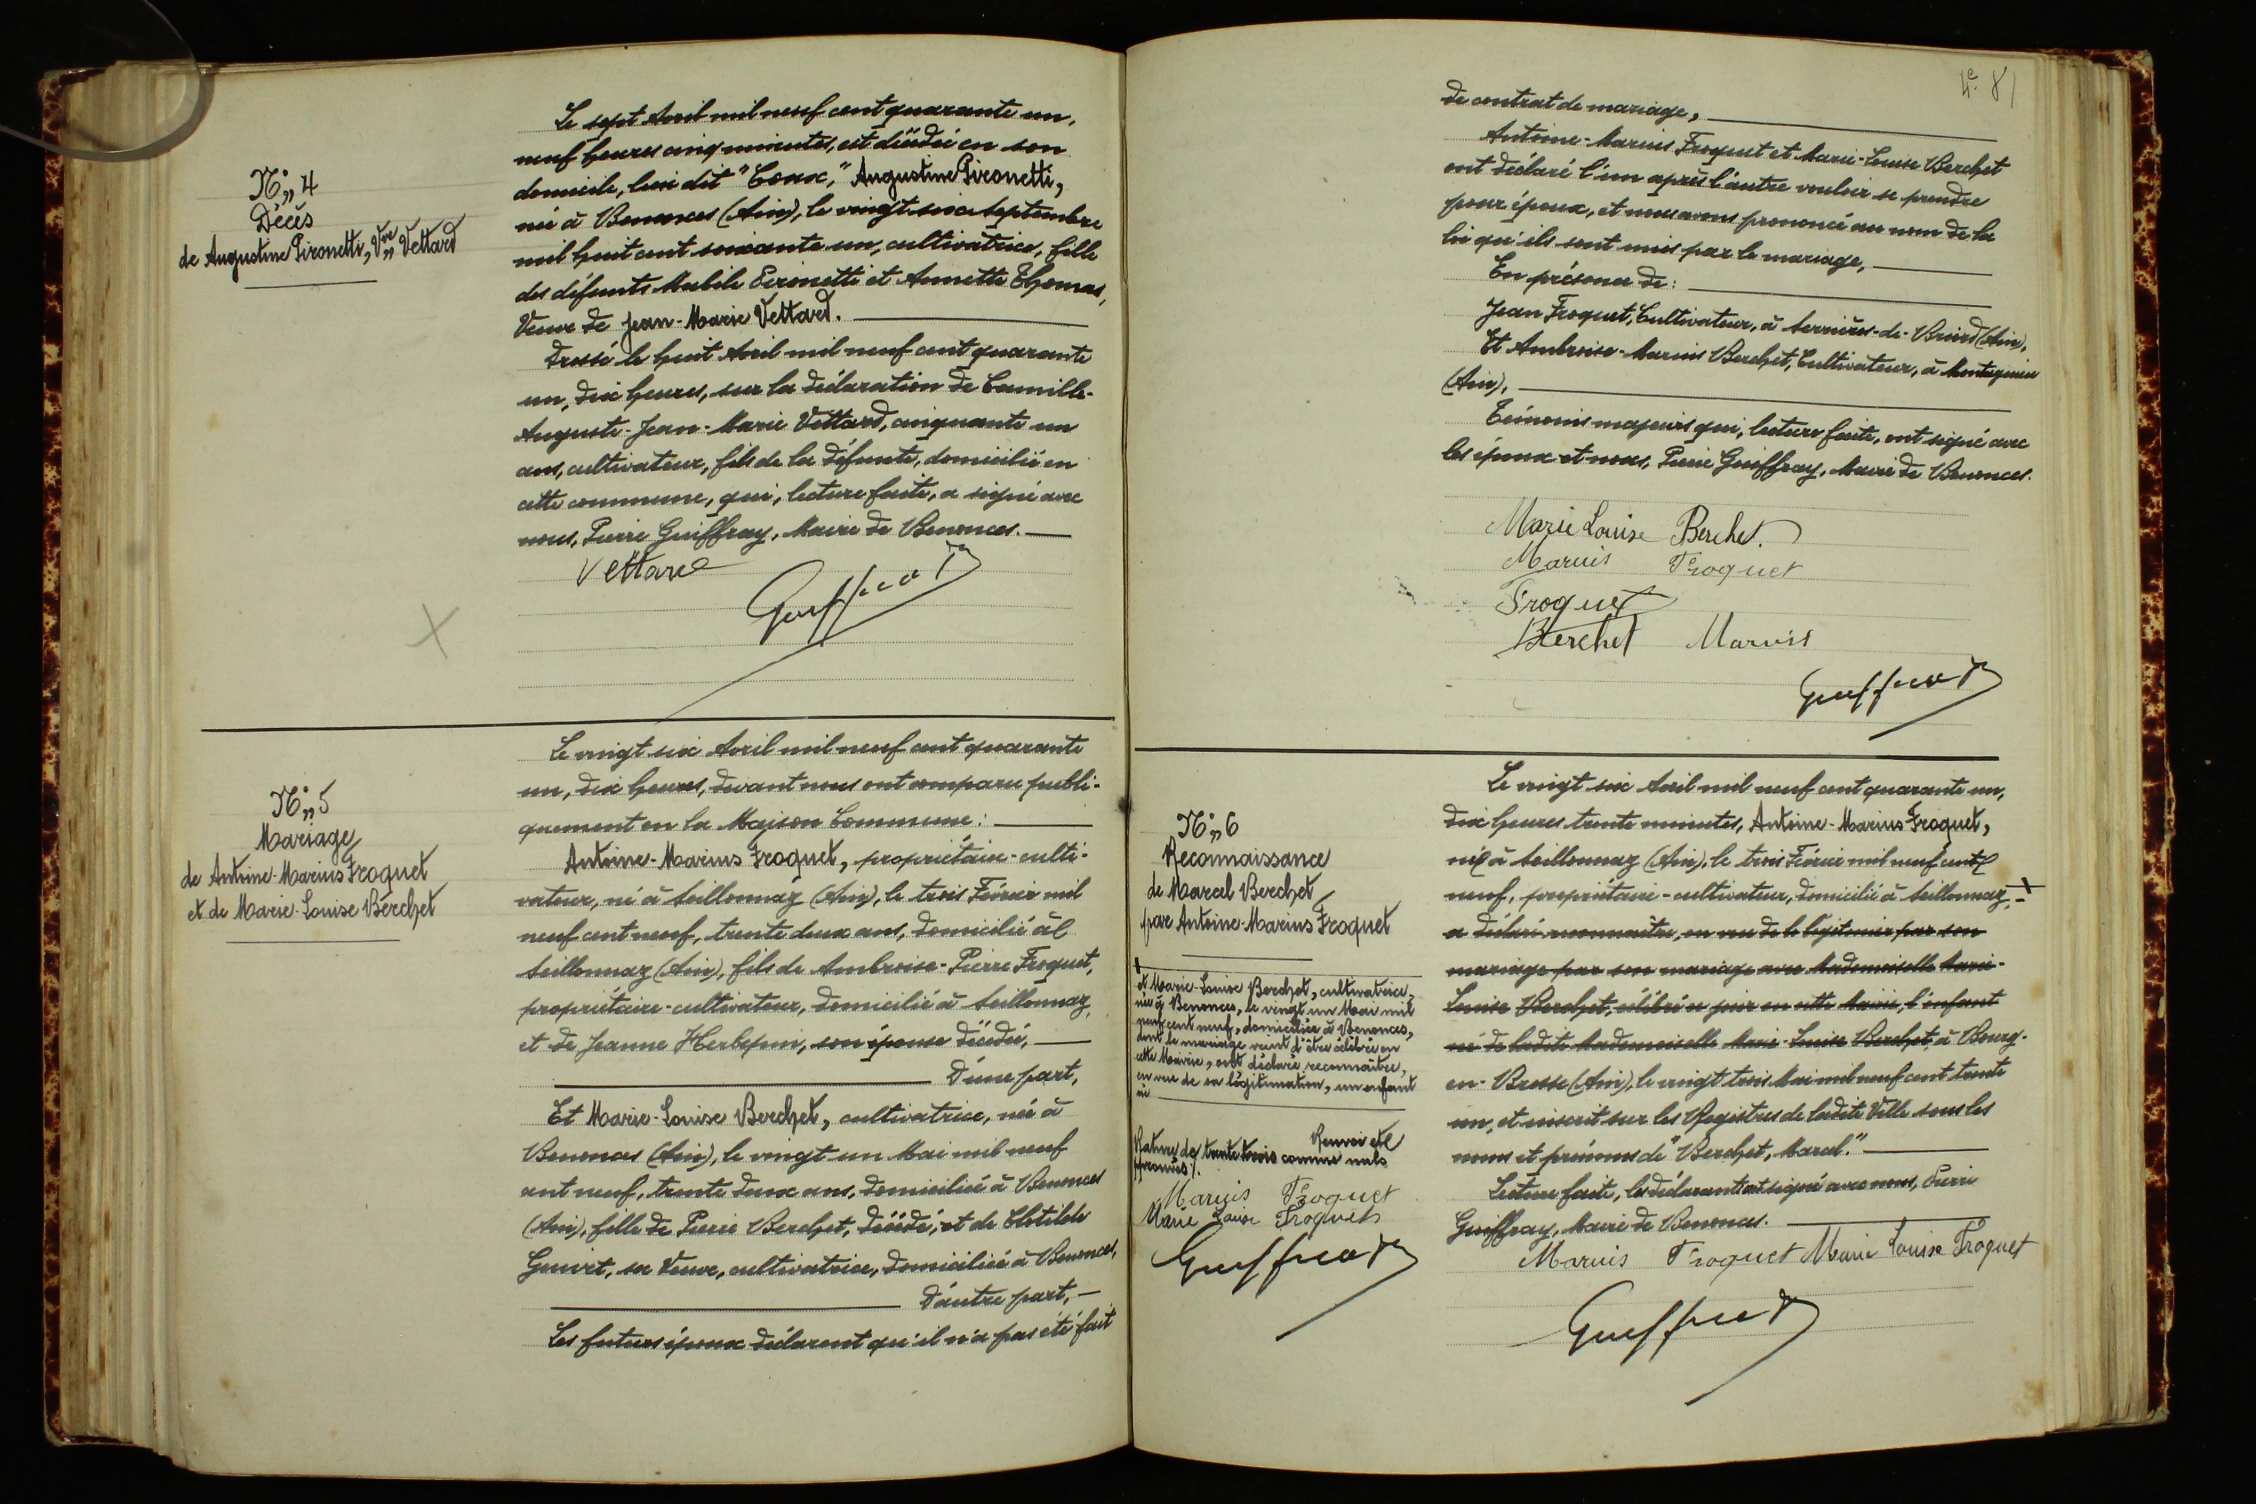 N° 4
Décès
de Augustine Pironetti, Vve Vettard
Le sept Avril mil neuf cent quarante un,
neuf heures cinq minutes, est décédée en son
domicile, lieu dit "Coux," Augustine Pironetti,
née à Benonces (Ain), le vingt six Septembre
mil huit cent soixante un, cultivatrice, fille
des défunts Mabile Pironetti et Annette Thomas,
Veuve de Jean-Marie Vettard.
Dressé le huit Avril mil neuf cent quarante
un, dix heures, sur la déclaration de Camille-
Auguste-Jean-Marie Vettard, cinquante un
ans, cultivateur, fils de la défunte, domicilié en
cette commune, qui, lecture faite, a signé avec
nous, Pierre Guiffray, Maire de Benonces.
Vettard
Guiffray
N° 5
Mariage
de Antoine-Marius Froquet
et de Marie-Louise Berchet
Le vingt six Avril mil neuf cent quarante
un, dix heures, devant nous ont comparu publi-
quement en la Maison Commune:
Antoine-Marius Froquet, propriétaire-culti-
vateur, né à Seillonnaz (Ain), le trois Février mil
neuf cent neuf, trente deux ans, domicilié à
Seillonnaz (Ain), fils de Ambroise-Pierre Froquet,
propriétaire-cultivateur, domicilié à Seillonnaz,
et de Jeanne Herbepin, son épouse décédée,
D'une part,
Et Marie-Louise Berchet, cultivatrice, née à
Benonces (Ain), le vingt un Mai mil neuf
cent neuf, trente deux ans, domiciliée à Benonces
(Ain), fille de Pierre Berchet, décédé, et de Clotilde
sa Veuve, cultivatrice, domiciliée à Benonces,
D'autre part,
Les futurs époux déclarent qu'il n'a pas été fait
4e 81
de contrat de mariage,
Antoine-Marius Froquet et Marie-Louise Berchet
ont déclaré l'un après l'autre vouloir se prendre
pour époux, et nous avons prononcé au nom de la
loi qu'ils sont unis par le mariage,
En présence de:
Jean Froquet, Cultivateur, à Serrières-de-Briord (Ain),
Et Ambroise-Marius Berchet, Cultivateur, à Montagnieu
(Ain),
Témoins majeurs qui, lecture faite, ont signé avec
les époux et nous, Pierre Guiffray, Maire de Benonces.
Marie Louise Berchet.
Marius Froquet
Froquet
Berchet Marius
Guiffray
N° 6
Reconnaissance
de Marcel Berchet
par Antoine-Marius Froquet
et Marie-Louise Berchet, cultivatrice,
née à Benonces, le vingt un Mai mil
neuf cent neuf, domiciliée à Benonces,
dont le mariage vient d'être célébré en
cette Mairie, ont déclaré reconnaître,
en vue de sa légitimation, un enfant
né
Renvoi et
Rature de trente trois comme nuls
approuvés.
Marius Froquet
Marie Louise Froquet
Guiffray
Le vingt six Avril mil neuf cent quarante un,
dix heures trente minutes, Antoine-Marius Froquet,
né à Seillonnaz (Ain), le trois Février mil neuf cent
neuf, propriétaire-cultivateur, domicilié à Seillonnaz,
a déclaré reconnaître, en vue de le légitimer par son
mariage par son mariage avec Mademoiselle Marie-
Louise Berchet, célébré ce jour en cette Mairie, l'enfant
né de ladite Mademoiselle Marie-Louise Berchet, à Bourg-
en-Bresse (Ain), le vingt trois Mai mil neuf cent trente
un, et inscrit sur les Registres de ladite Ville sous les
noms et prénoms de "Berchet, Marcel."
Lecture faite, les déclarants ont signé avec nous, Pierre
Guiffray, Maire de Benonces.
Marius Froquet Marie Louise Froquet
Guiffray